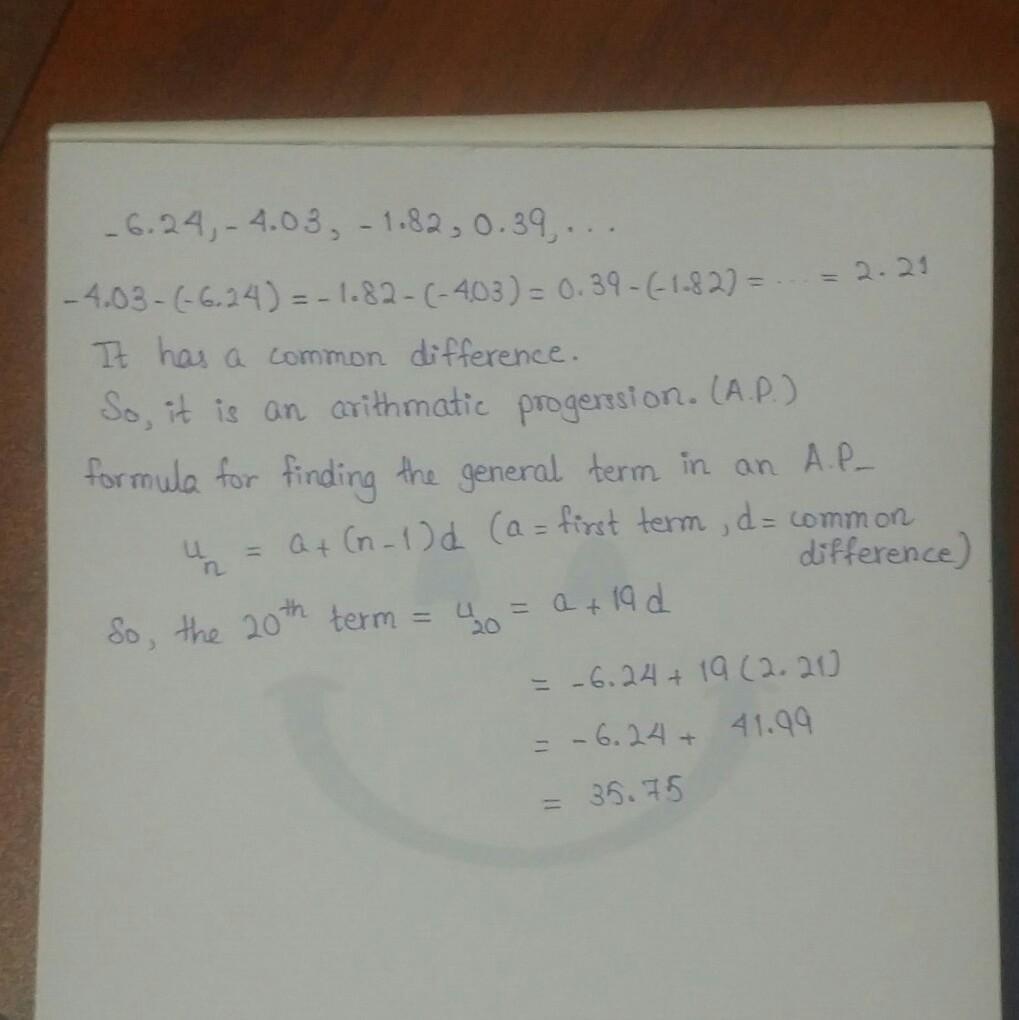 -6.24, -4.03, -1.82, 0.39, ...
-4.03-(-6.24) = -1.82-(-4.03) = 0.39-(-1.82) = .... = 2.21
It has a common difference.
So, it is an arithmatic progerssion. (A.P.)
formula for finding the general term in an A.P_
u_n = a+(n-1)d (a = first term, d = common
difference)
So, the 20th term = u_20 = a + 19d
= -6.24 + 19(2.21)
= -6.24 + 41.99
= 35.75